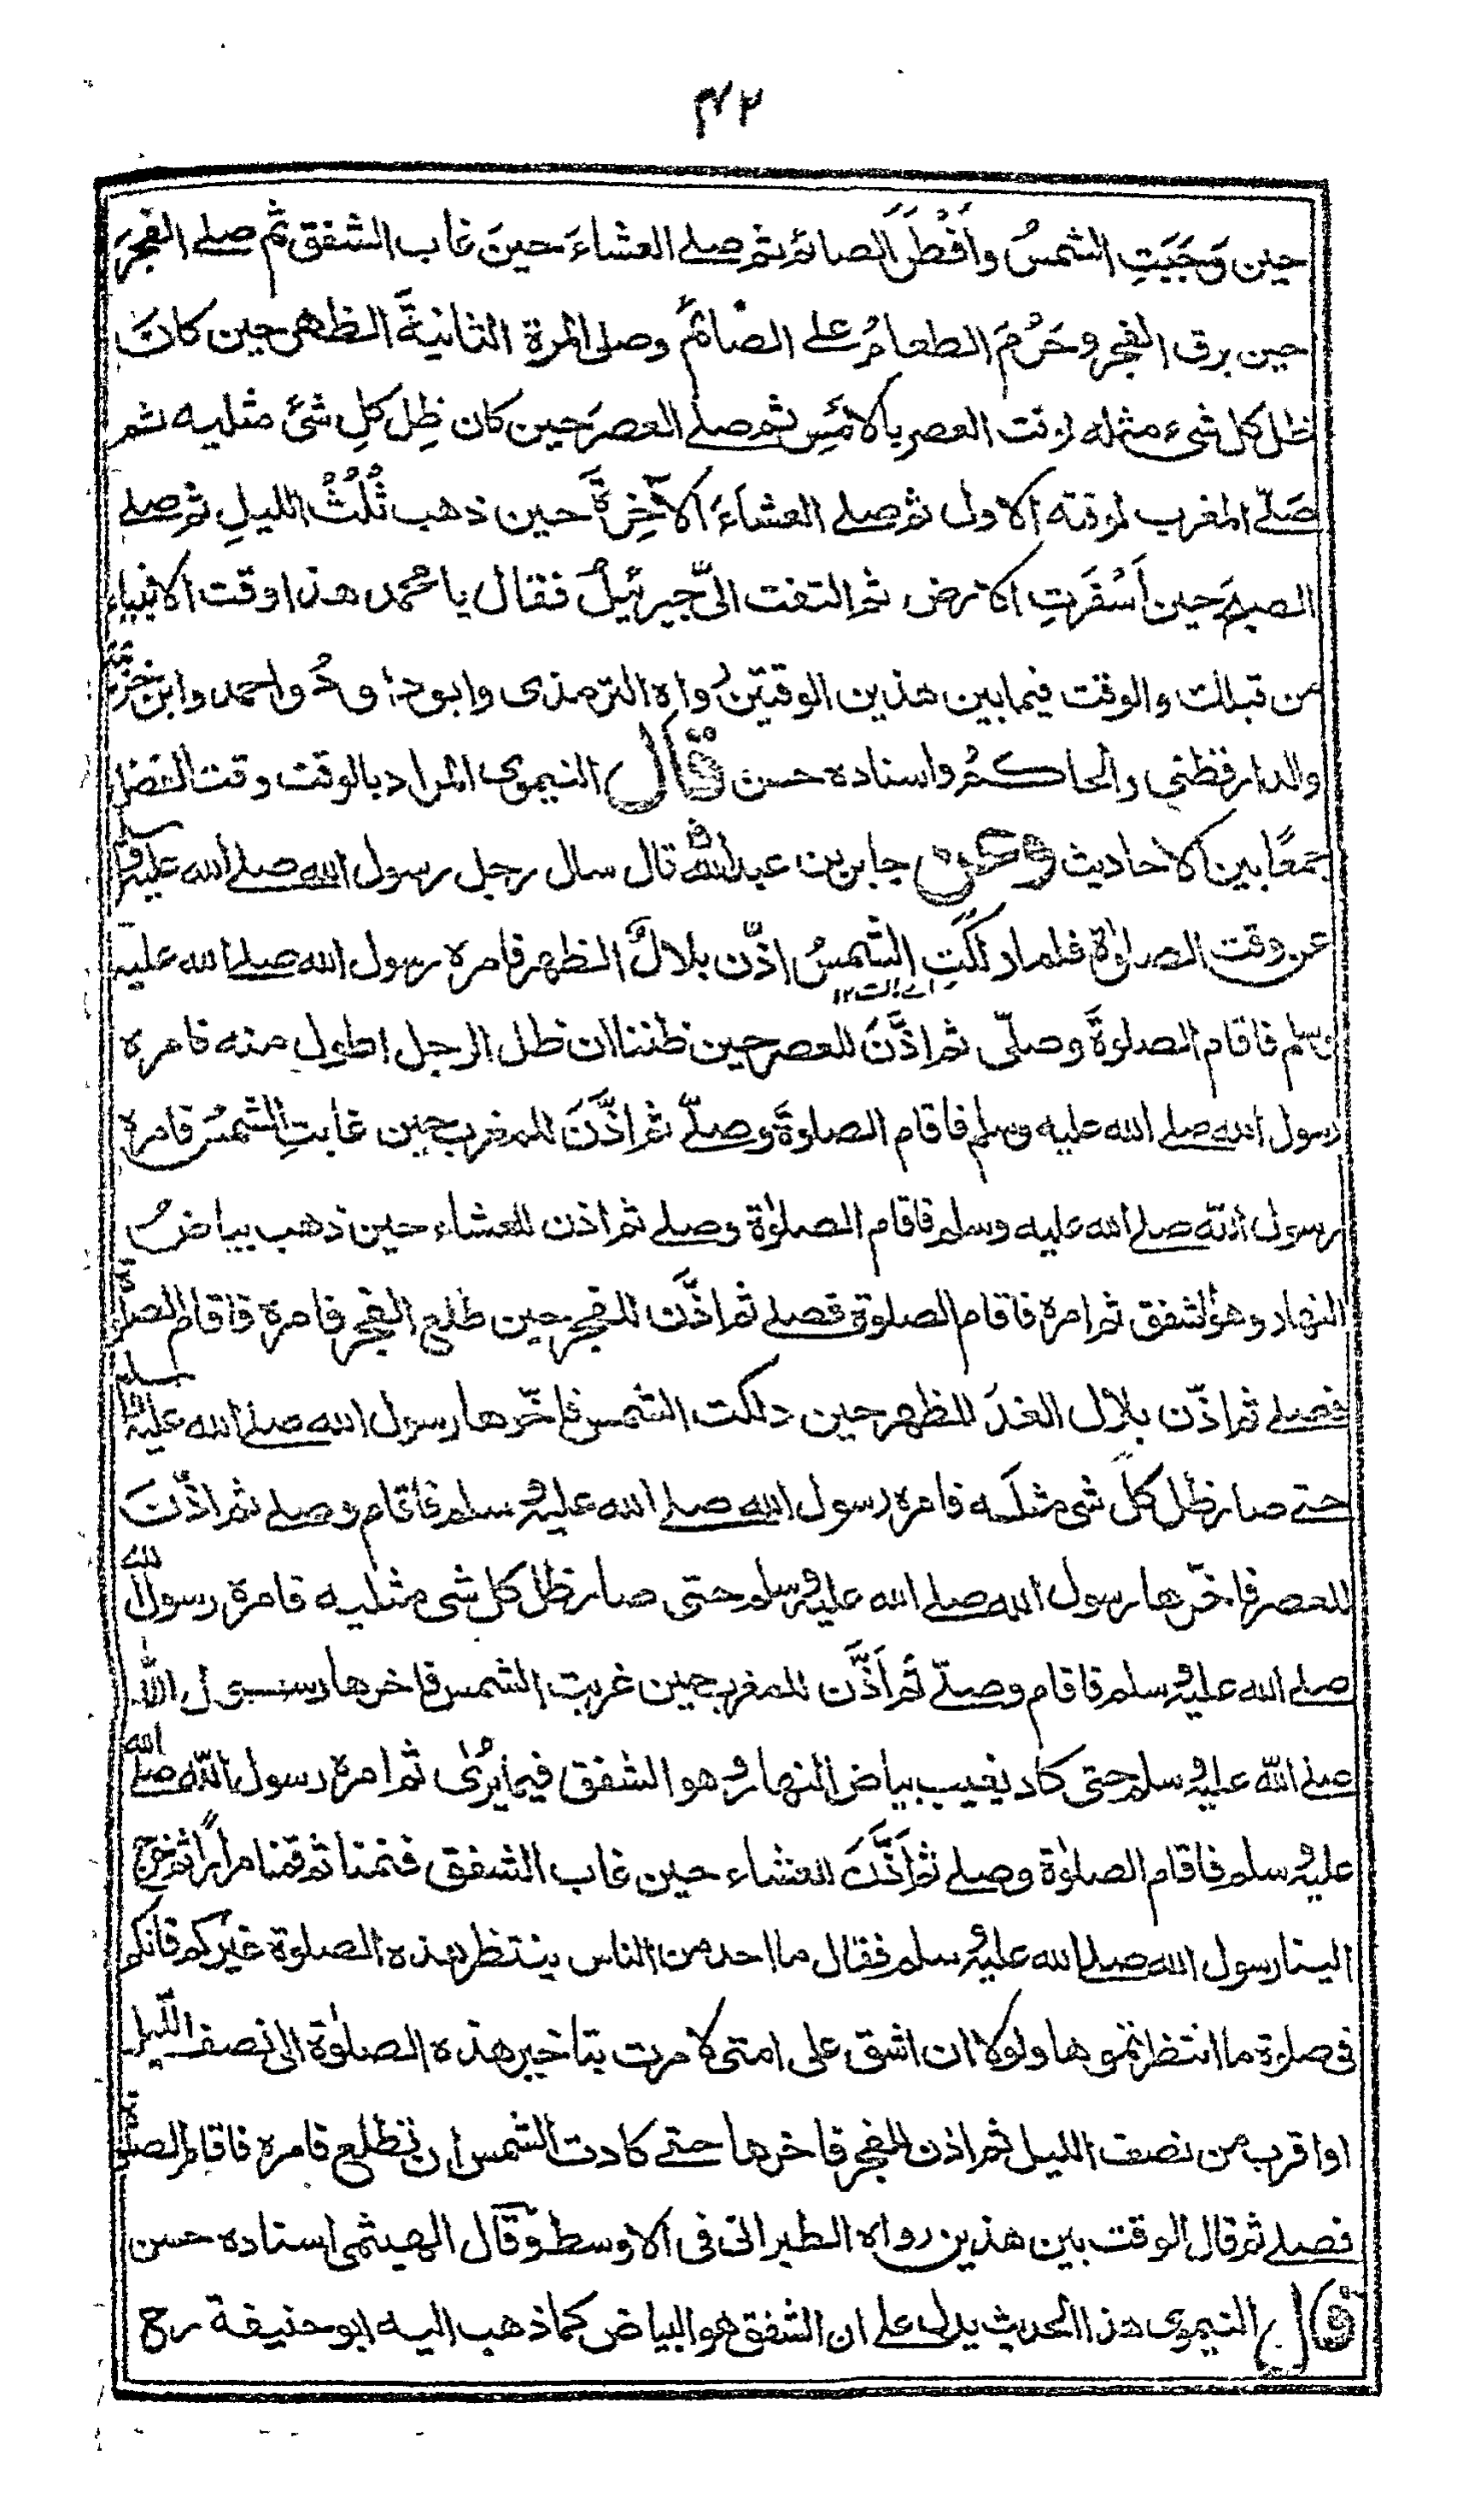 ۴۲
حين وَجَبَتِ الشمسُ وأَفْطَرَ الصائم ثم صلے العشاءَ حينَ غاب الشفق ثم صلے الفجرَ
حين برق الفجر وحَرُمَ الطعامُ علے الصائم وصلى المرة الثانيةَ الظهر حين كانَ
ظل كل شیء مثله لوقت العصر بالامْسِ ثم صلے العصرَ حين كان ظِل كلِ شئ مثليه ثم
صَلّے المغرب لوقته الاول ثم صلے العشاءَ الآخِرةَ حين ذهب ثُلُثُ الليلِ ثم صلے
الصبحَ حين اَسْفَرَتِ الارض ثم التفت الیّ جبرئيلُ فقال يا محمد هذا وقت الانبياء
من قبلك والوقت فيما بين هذين الوقتين رواه الترمذى وابوداودُ واحمد وابن خزيمة
والدارقطنی والحاكم واسناده حسن قال النيموى المراد بالوقت وقت الفضل
جمعًا بين الاحاديث وعن جابر بن عبد الله قال سال رجل رسول الله صلے الله عليه وسلم
عن وقت الصلوٰة فلما دلكَتِ الشمسُ اذّن بلالٌ الظهر فامره رسول الله صلے الله عليه
اے زالت ۱۲
وسلم فاقام الصلوةَ وصلّى ثم اذَّنَ للعصر حين ظننا ان ظل الرجل اطول منه فامره
رسول الله صلے الله عليه وسلم فاقام الصلوةَ وصلّے ثم اذَّنَ للمغرب حين غابتِ الشمسُ فامره
رسول الله صلے الله عليه وسلم فاقام الصلوٰة وصلے ثم اذن للعشاء حين ذهب بياضُ
النهار وهو الشفق ثم امره فاقام الصلوة فصلے ثم اذَّن للفجر حين طلع الفجر فامره فاقام الصلوٰة
فصلے ثم اذّن بلال الغدَ للظهر حين دلكت الشمس فاخّرها رسول الله صلے الله عليه وسلم
حتے صار ظل كلّ شی مثلَه فامره رسول الله صلے الله عليه وسلم فاقام وصلے ثم اذَّنَ
للعصر فاخّرها رسول الله صلے الله عليه وسلم حتى صار ظل كل شی مثليه فامره رسول الله
صلے الله عليه وسلم فاقام وصلّے ثم اَذَّن للمغرب حين غربت الشمس فاخرها رسول الله
صلے الله عليه وسلم حتى كاد يغيب بياض النهار وهو الشفق فيما يُرٰى ثم امره رسول الله صلے الله
عليه وسلم فاقام الصلوٰة وصلے ثم اَذَّنَ للعشاء حين غاب الشفق فنمنا ثم قمنا مرارًا ثم خرج
الينا رسول الله صلے الله عليه وسلم فقال ما احد من الناس ينتظر هذه الصلوة غيركم فانكم
فى صلوة ما انتظرتموها ولولا ان اشق على امتى لامرت بتاخير هذه الصلوٰة الى نصف الليل
او اقرب من نصف الليل ثم اذن للفجر فاخرها حتے كادت الشمس ان تطلع فامره فاقام الصلوٰة
فصلے ثم قال الوقت بين هذين رواه الطبرانى فى الاوسط وقال الهيثمى اسناده حسن
قال النيموى هذا الحديث يدل علے ان الشفق هو البياض كما ذهب اليه ابوحنيفة رح